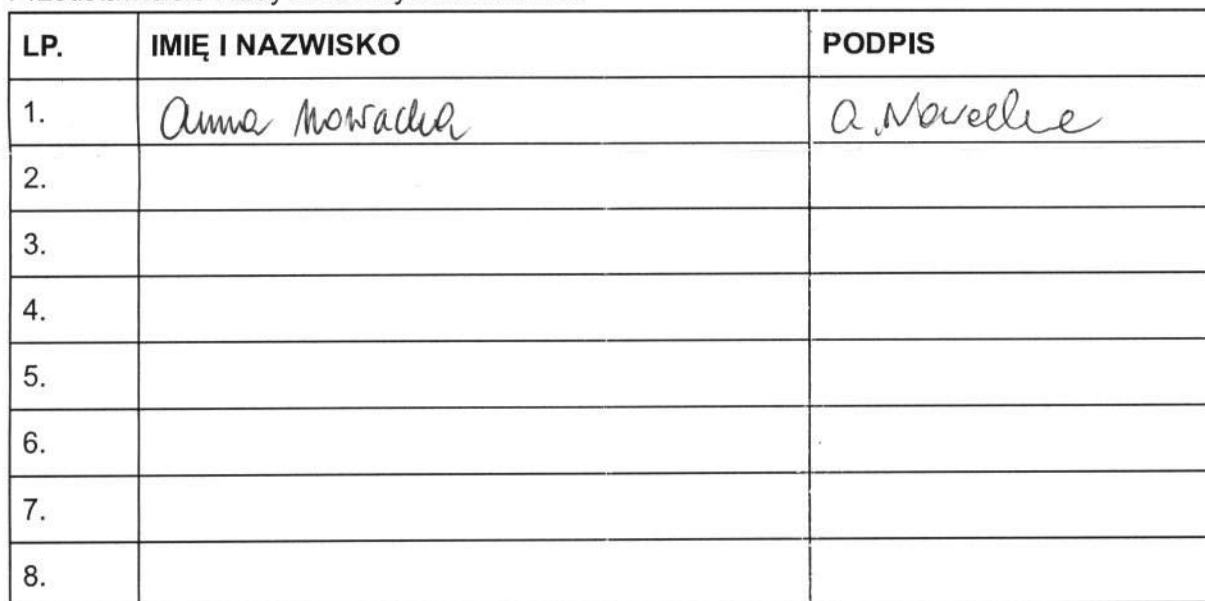 LP. IMIĘ I NAZWISKO PODPIS
1. Anna Nowacka A. Nowacka
2.
3.
4.
5.
6.
7.
8.